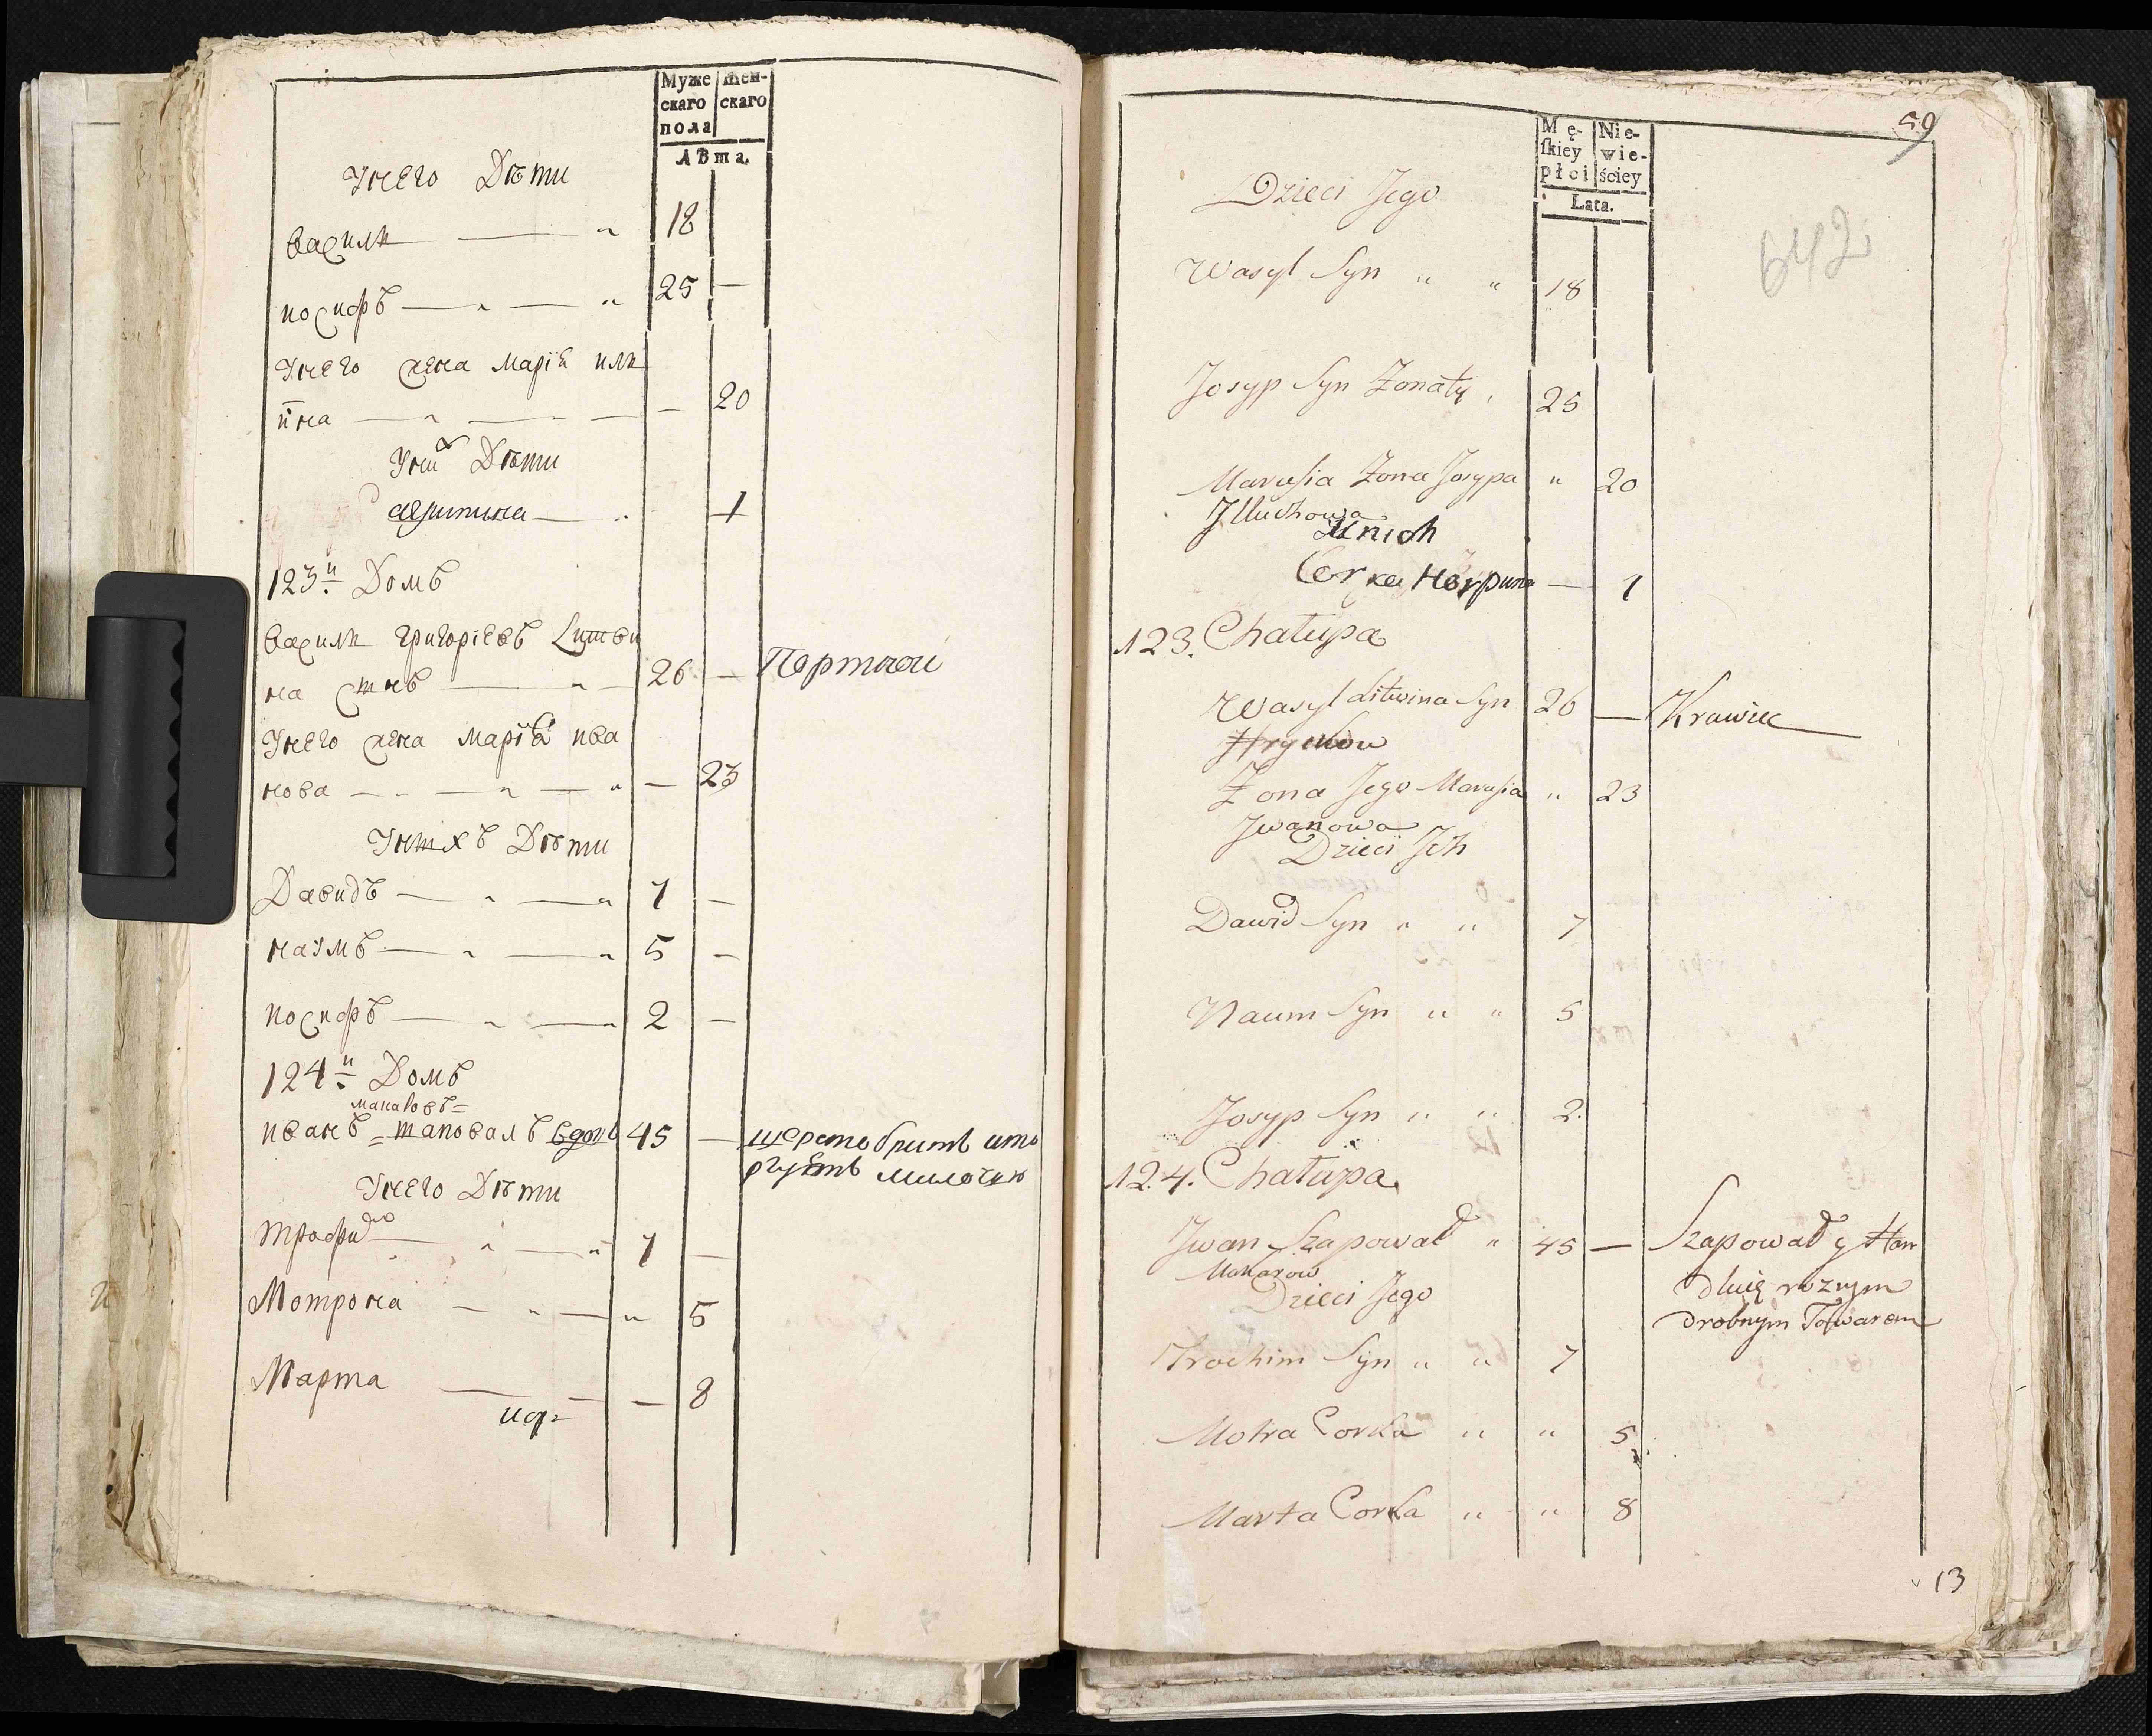 Муже
скаго
пола
Жен-
скаго
лѣта.
У него Дѣти
Василі — 18
иосифъ — 25 —
У него жена Марія илі
іна — 20
У ни Дѣти
агрипина — 1
123й Домъ
Василі григоріевъ Литви
на снъ — 26 — Портной
У него жена Марія ива
нова — 23
У нихъ Дѣти
Давидъ — 7 —
наумъ — 5 —
иосифъ — 2 —
124й Домъ
макаровъ =
иванъ = шаповалъ вдовъ 45 —
У него Дѣти
трофи — 7 —
Мотрона — 5
Марта — 8
59
Mę-
ſkiey
płci
Nie-
wie-
ściey
Lata.
642
Dzieci Jego
Wasyl Syn " " 18
Josyp Syn Zonaty, 25
Marusia Zona Josypa " 20
Jlluchowa
Unich
Corka Horpина — 1
123. Chałupa
Wasyl Litwina Syn 26 — Krawiec
Hryckow
Zona Jego Marusia " 23
Jwanowa
Dzieci Jch
Dawid Syn " " 7
Naum Syn " " 5
Josyp Syn " " 2.
124. Chałupa
Jwan Szapował " 45 — Szapował y Han
Makarow
dluię roznym
Dzieci Jego
drobnym Towarem
Trochim Syn " " 7
Motra Corka " " 5
Marta Corka " " 8
13